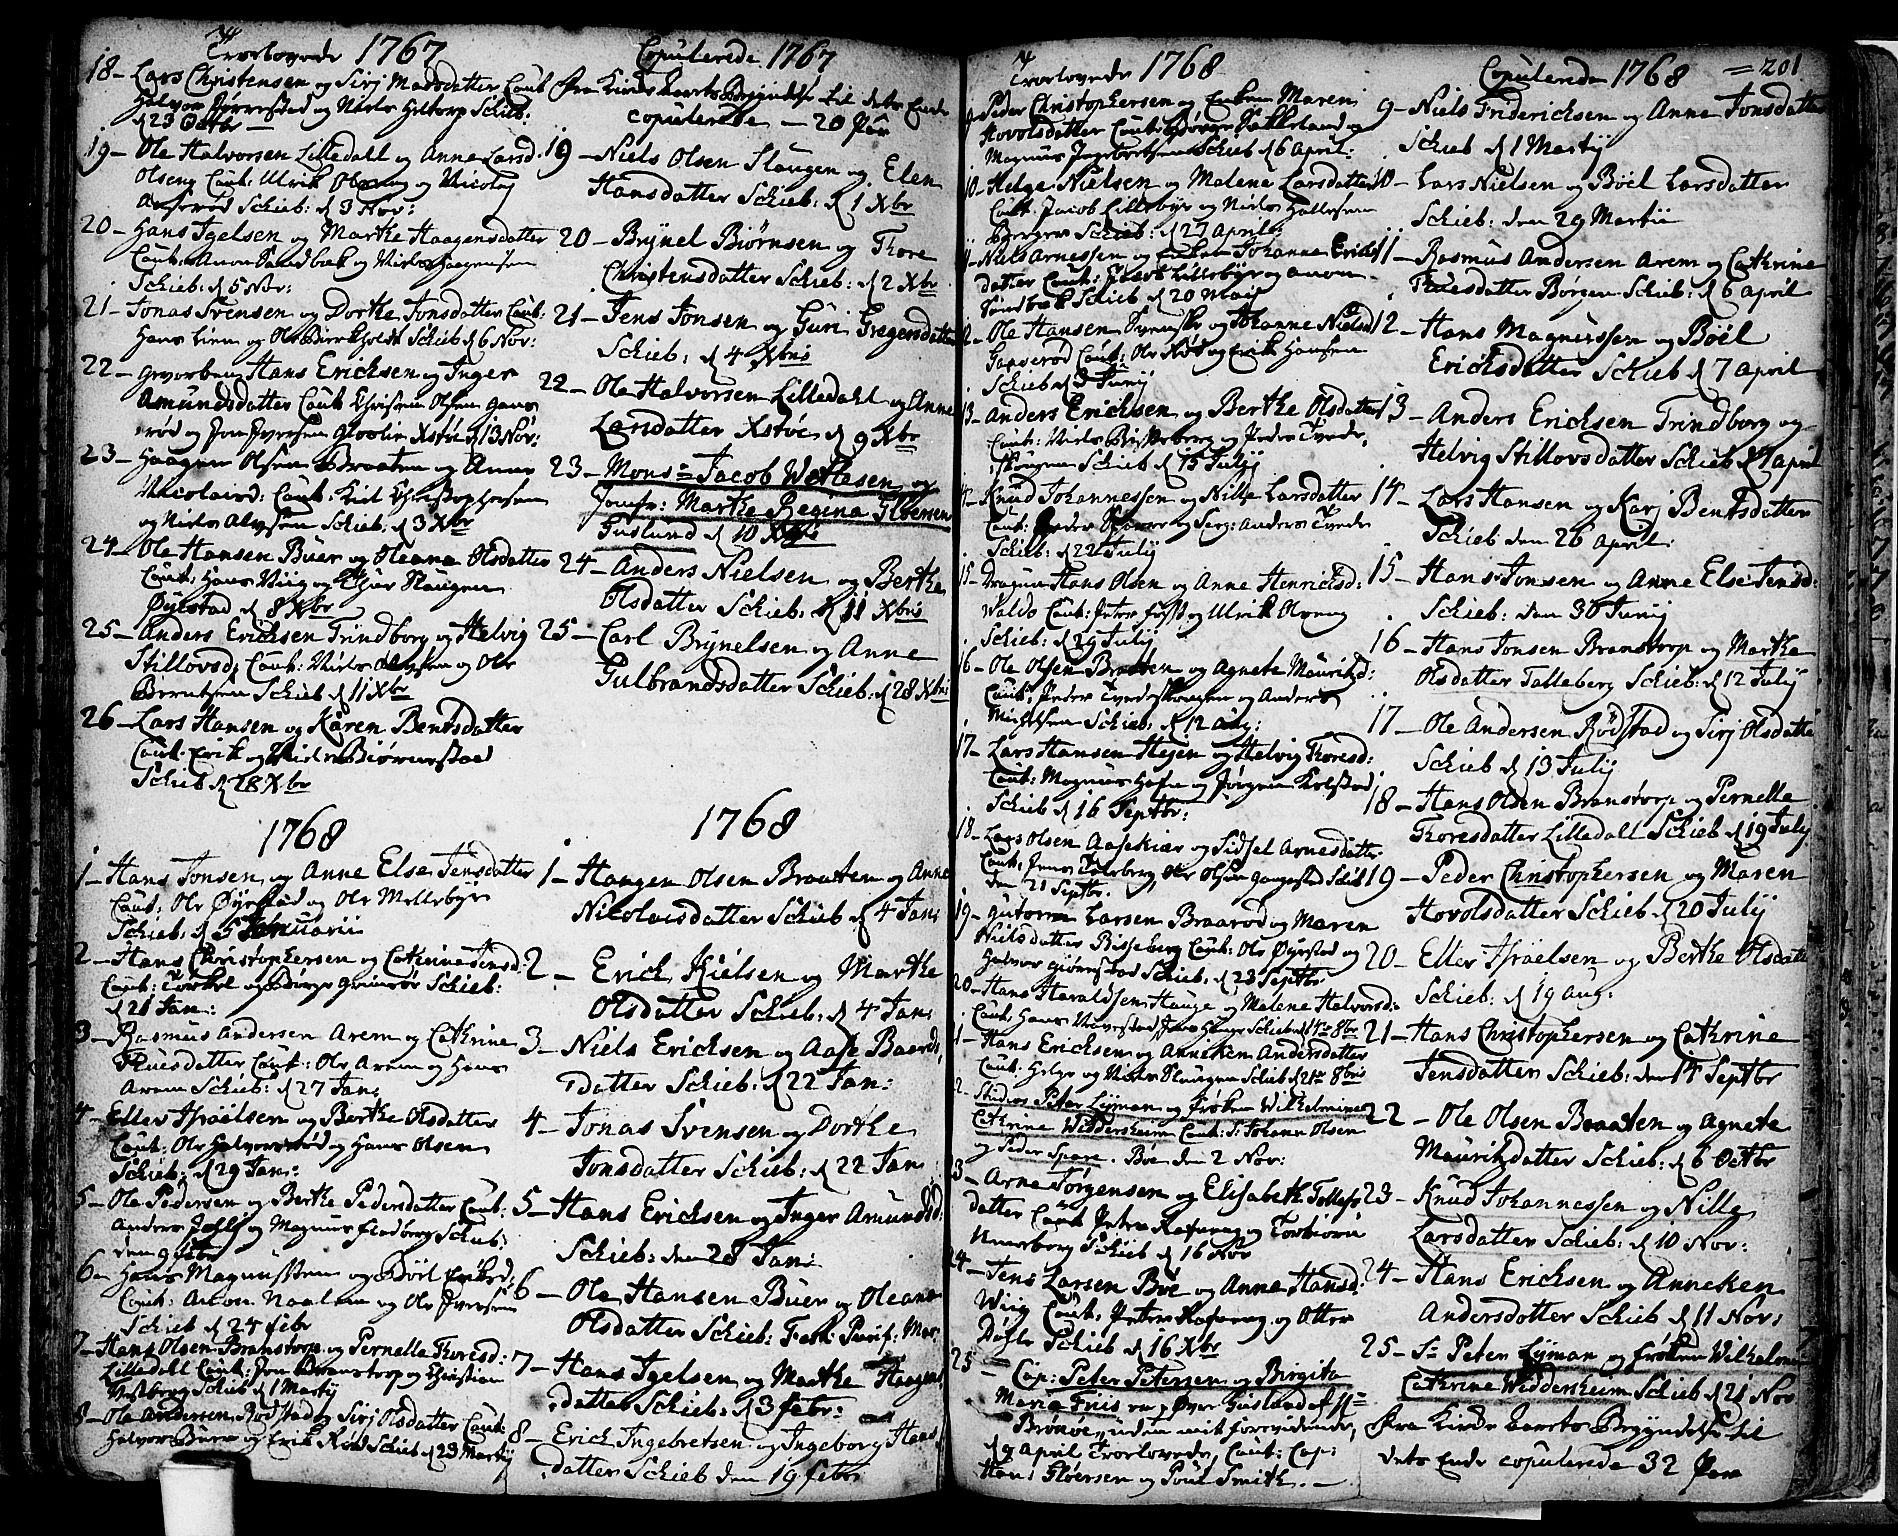 Trorlovede 1767
18 - Lars Christensen og Sirj Madsdatter Caut
Halvor og Niels Heltorp Schieb:
d 23 Octbr -
19 - Ole Halvorsen Lilledall og Anne Larsd.
Olseng Caut: Ulrik Olseng og Nicolaj
Schieb: d 3 Nov:
20 - Hans Igelsen og Marthe Haagensdatter
Caut: Anon Sandbæk og Niels Haagensen
Schieb: d 5 Nov:
21 - Jonas Svensen og Dorthe Jonsdatter Caut:
Hans Lien og Ole Birkholdt Schieb d 6 Nov:
22 - Hans Ericksen og Inger
Amundsdatter Caut Christen Olsen
rød og Jon Iversen Xstöe d 13 Nov:
23 - Haagen Olsen Braaten og Anne
Nicolaisd: Caut: Kiel Christophersen
og Niels Alvsen Schieb: d 3 Xbr
24 - Ole Hansen Buer og Oleana Olsdatter
Caut: Hans Viig og Slaugen
Øyestad d 8 Xbr
25 - Anders Ericksen Trindborg og Helvig
Stillovsd: Caut: Niels og Ole
Berntsen Schieb d 11 Xbr
26 - Lars Hansen og Karen Bentsdatter
Caut: Erik og Niels Biørnestad
Schieb d 28 Xbr
1768
1 - Hans Jonsen og Anne Else Jensdatter
Caut: Ole Øyestad og Ole Mellebye
Schieb: d 5 Januarii
2 - Hans Christophersen og Cathrine Jensd:
Caut: Torkel og Børge Grimsør Schieb:
d 21 Jan:
3 - Rasmus Andersen Arem og Cathrine
Truesdatter Caut: Ole Arem og Hans
Arem Schieb: d 27 Jan:
4 - Eller Israelsen og Berthe Olsdatter
Caut: Ole Halvorsrød og Hans Olsen
Schieb: d 29 Jan:
5 - Ole Pedersen og Berthe Pedersdatter Caut:
Anders og Magnus Schieb:
den 9 febr
6 - Hans Magnussen og Böel Ericksd:
Caut: Anon Naalum og Ole Iversen
Schieb d 24 febr
7 - Hans Olsen Branstorp og Pernella Thoresd:
Lilledall Caut: Jon Branstorp og Christian
Vestberg Schieb d 1 Martij
8 - Ole Andersen Rødstad og Sirj Olsdatter Caut
Halvor Buer og Erik Rød Schieb d 23 Martij
Copulerede 1767
Fra Kirke Aarets Begyndelse til dets Ende
copulerede - 20 Par
19 - Niels Olsen Slaugen og Elen
Hansdatter Schieb: d 1 Xbr
20 - Brynel Biørnsen og Thore
Christensdatter Schieb: d 2 Xbr
21 - Jens Jonsen og Guri Gregersdatter
Schieb: d 4 Xbris
22 - Ole Halvorsen Lilledahl og Anne
Larsdatter Xstöe d 9 Xbr
23 - Mons= Jacob Wettesen og
Jomfr: Marthe Regina Gloersen
Guslund d 10 Xbris
24 - Anders Nielsen og Berthe
Olsdatter Schieb: d 11 Xbris
25 - Carl Brynelsen og Anne
Gulbrandsdatter Schieb: d 28 Xbris
1768
1 - Haagen Olsen Braaten og Anne
Nicolaisdatter Schieb d 4 Jan:
2 - Erick Kielsen og Marthe
Olsdatter Schieb: d 4 Jan:
3 - Niels Ericksen og Aase Baards
datter Schieb: d 22 Jan:
4 - Jonas Svensen og Dorthe
Jonsdatter Schieb: d 22 Jan
5 - Hans Ericksen og Inger Amundsd
Schieb: den 28 Jan:
6 - Ole Hansen Buer og Oleana
Olsdatter Schieb: Fest: Purif: Mar:
7 - Hans Igelsen og Marthe Haagens
datter Schieb: d 3 febr:
8 - Erich Ingebretsen og Ingeborg Hans
datter Schieb den 19 febr
Trorlovede 1768
9 - Peder Christophersen og Enken Maren
Hovolsdatter Caut: og
Magnus Ingebretsen Schieb d 6 April:
10 - Helge Nielsen og Malene Larsdatter
Caut: Jacob Lillebye og Niels Hallesen
Berger Schieb: d 27 April:
11 - Niels Arnessen og Enken Johanne Ericks
datter Caut: Jacob Lillebye og Anon
Sandbæk Schieb d 20 Maij
12 - Ole Hansen Svenske og Johanne Nielsd
Gasserød Caut: Ole Rød og Erik Hansen
Schieb d 3 Junij
13 - Anders Ericksen og Berthe Olsdatter
Caut: Niels Bisseberg og Peder Tvede
skougen Schieb d 15 Julij
14 - Knud Johannessen og Nille Larsdatter
Caut: Peder Sparre og Serg: Anders Tvede
Schieb: d 22 Julij
15 - Dragun Hans Olsen og Anne Henricksd:
Walds Caut: Peter og Ulrik Olseng
Schieb: d 29 Julij
16 - Ole Olsen Braaten og Agnete Mauritzd:
Caut: Peder Tvedeskougen og Anders
Michelsen Schieb: d 12 Aug:
17 - Lars Hansen Hejen og Helvig Thoresd:
Caut: Magnus Hafn og Jørgen Kolstad
Schieb d 16 Septbr:
18 - Lars Olsen Aasekiær og Sidsel Arnesdatter
Caut: Jens og Ole Olsen Schieb
den 21 Septbr.
19 - Gutorm Larsen Braarød og Maren
Nielsdatter Bisseberg Caut: Ole Øyestad og
Halvor Giörnestad Schieb: d 23 Septbr
20 - Hans Haraldsen Hauge og Malene Halvorsd:
Caut: Hans Schieb d 14 8br
21 - Hans Ericksen og Anniken Andersdatter
Caut: Helge og Niels Slaugen Schieb d 21 8bris
22 - Studios Peter Lyman og Frøken Wilhelmine
Cathrine Widdersheim Caut: Sr Johann Olsen
og Peder Spare. Böe den 2 Nov:
23 - Arne Jørgensen og Elisabeth Tollefs
datter Caut Peter og Torbiørn
Unneberg Schieb d 16 Nov
24 - Jens Larsen Böe og Anne Hansd:
Wiig Caut: Peter og Otter
Dahle Schieb d 16 Xbr
25 - Cap: Peter Petersen og Birgita
Maria Friis
Brönöe, uden mit forevidende,
d 9 April Trorlovede, Caut: Cap:
Hans Gloersen og Poul Smith. -
Copulerede 1768 = 201
9 - Niels Friderichsen og Anne Jonsdatter
Schieb d 1 Martij
10 - Lars Nielsen og Böel Larsdatter
Schieb: den 29 Martii
11 - Rasmus Andersen Arem og Cathrine
Truesdatter Borgen Schieb: d 6 April
12 - Hans Magnussen og Böel
Ericksdatter Schieb d 7 April
13 - Anders Ericksen Trindborg og
Helvig Stillovsdatter Schieb d 7 April
14 - Lars Hansen og Karj Bentsdatter
Schieb den 26 April
15 - Hans Jonsen og Anne Else Jensd:
Schieb: den 30 Junij
16 - Hans Jonsen Branstorp og Marthe
Olsdatter Talleberg Schieb: d 12 Julij
17 - Ole Andersen Rødstad og Sirj Olsdatte
Schieb d 13 Julij
18 - Hans Olsen Branstorp og Pernella
Thoresdatter Lilledall Schieb d 19 July
19 - Peder Christophersen og Maren
Hovolsdatter Schieb d 20 Julij
20 - Eller Israelsen og Berthe Olsdatte
Schieb: d 19 Aug:
21 - Hans Christophersen og Cathrine
Jensdatter Schieb: den 14 Septbr
22 - Ole Olsen Braaten og Agnete
Mauritzdatter Schieb: d 6 Octbr
23 - Knud Johannessen og Nille
Larsdatter Schieb: d 10 Nov:
24 - Hans Ericksen og Anneken
Andersdatter Schieb d 11 Nov:
25 - Sr Peter Lyman og frøken Wilhelmi
Cathrine Widdersheim Schieb d 21 Nov
Fra Kirke Aarets Begyndelse til
dets Ende copulerede 32 Par